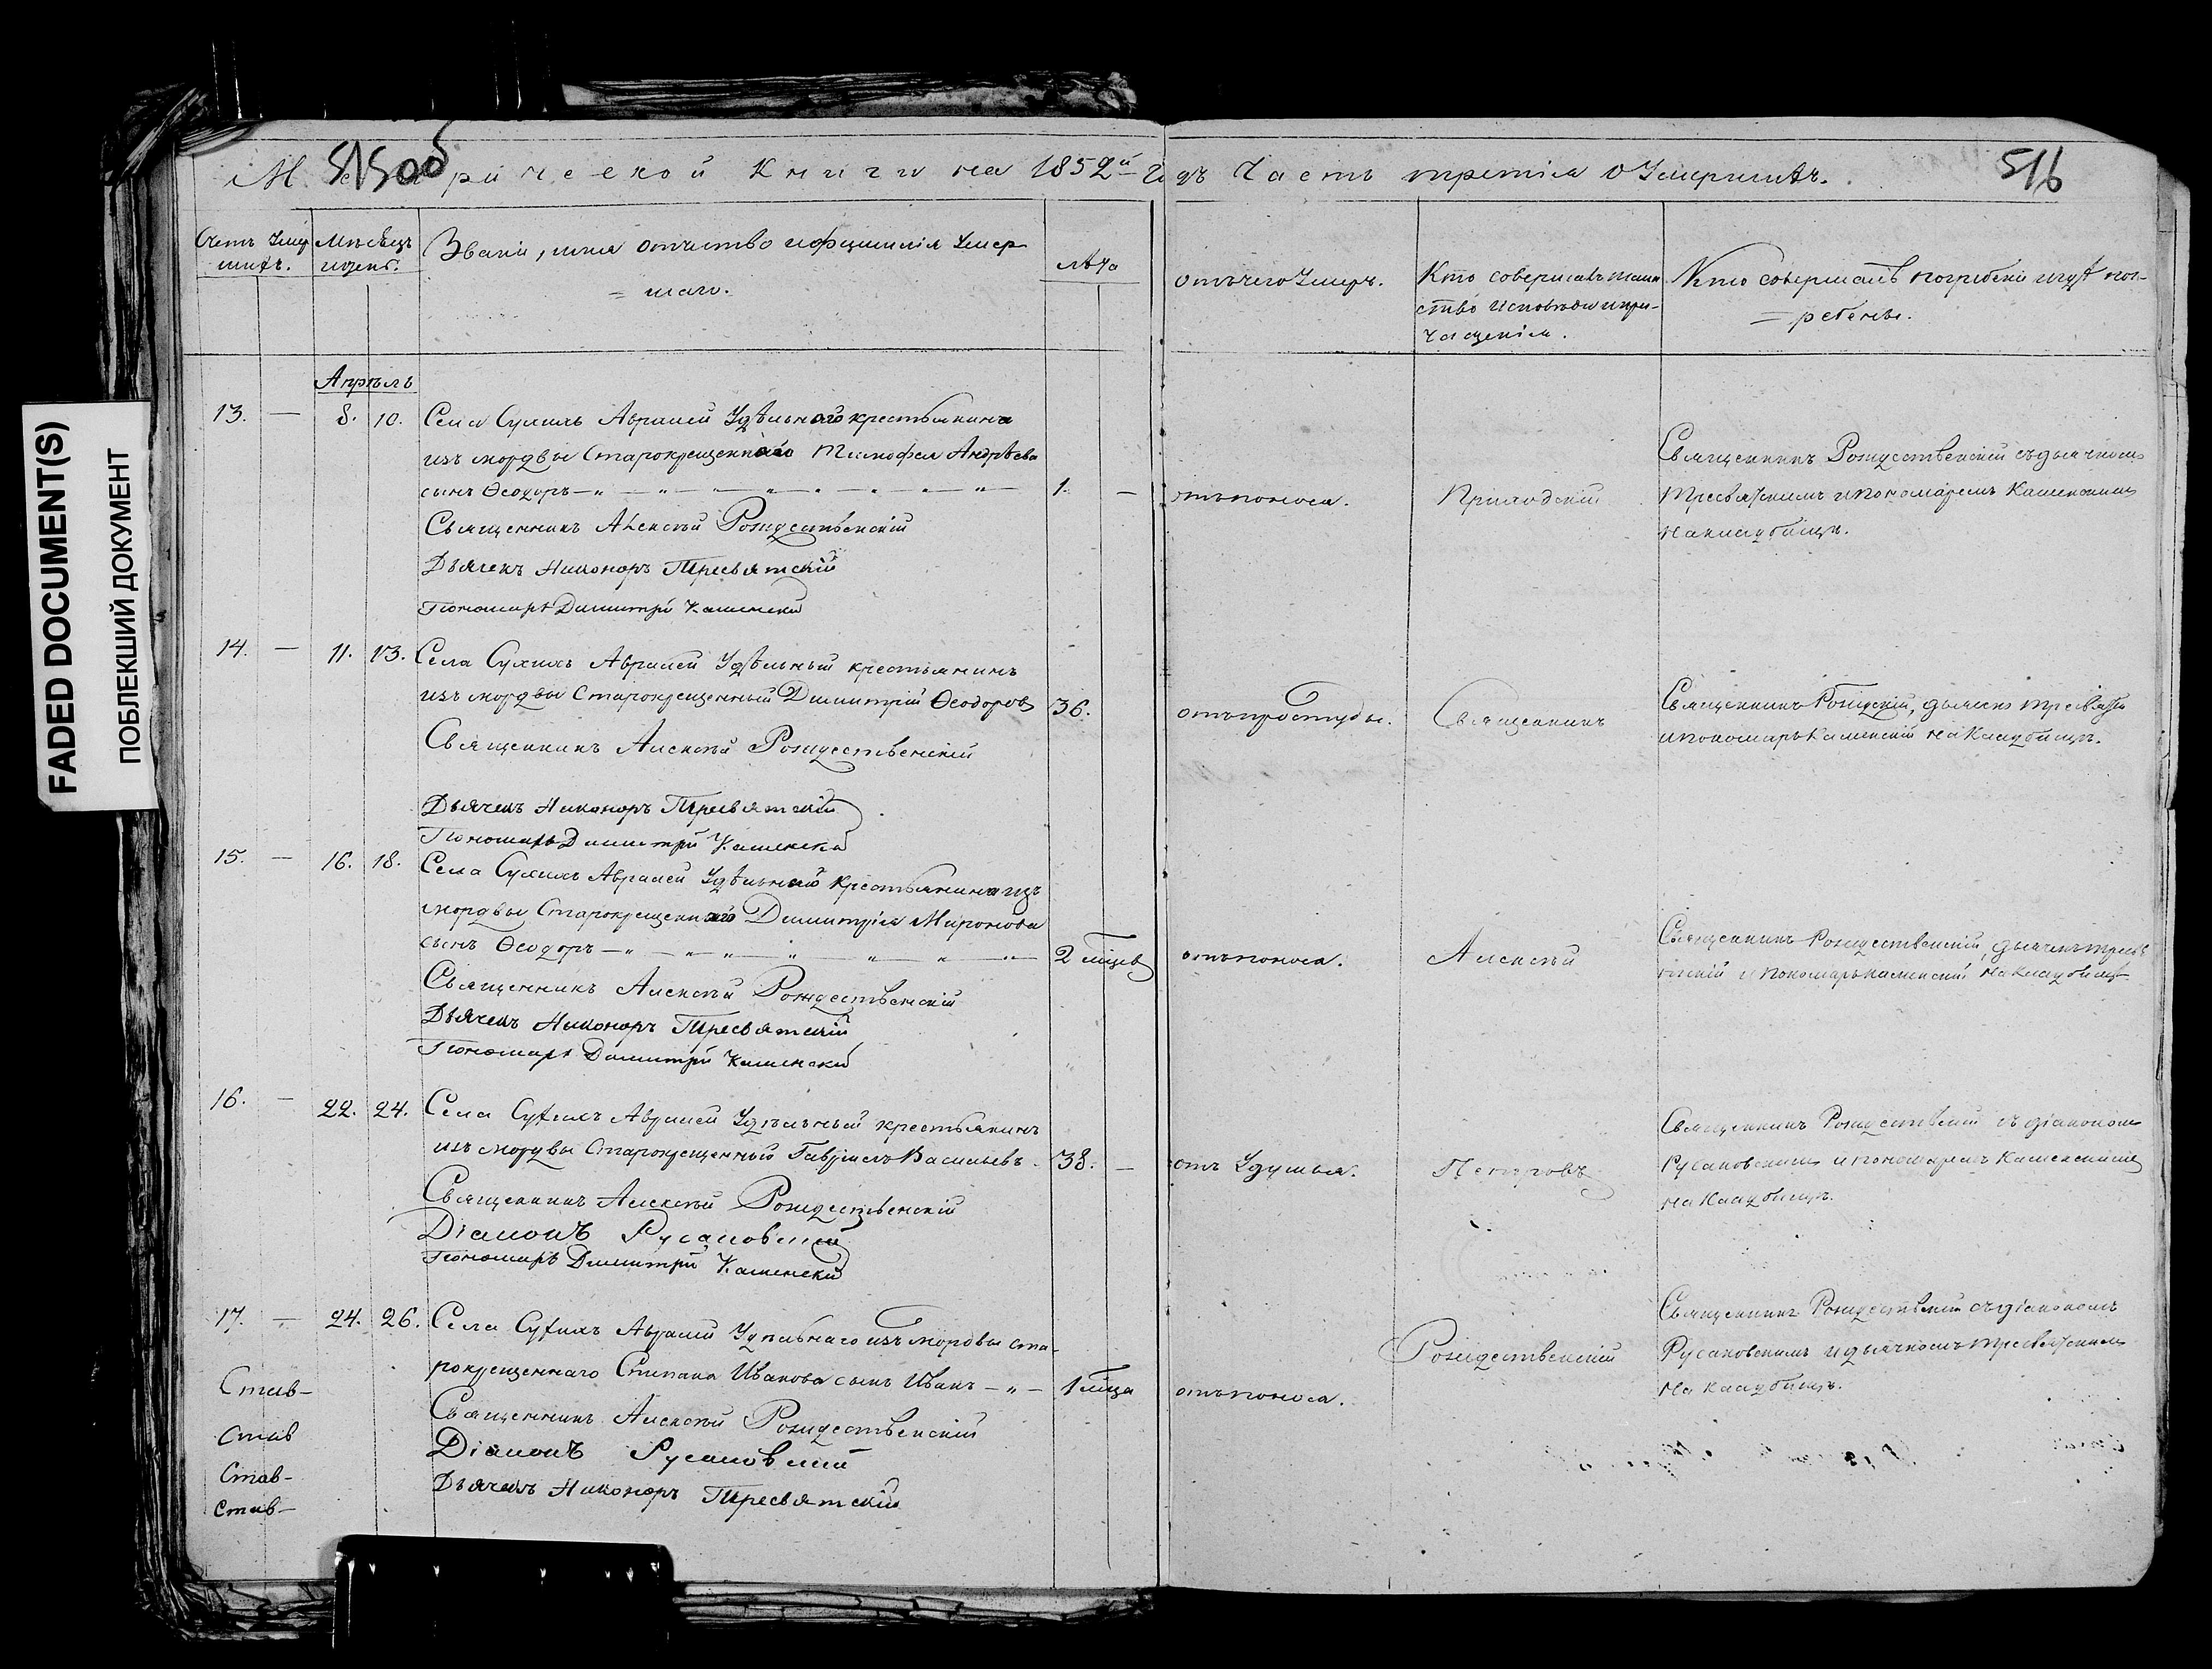 FADED DOCUMENT(S)
ПОБЛЕКШИЙ ДОКУМЕНТ
515об
516
Метрической Книги на 1852й Годъ Часть третія о Умершихъ.
Счетъ Умер
шихъ.
Мѣсяцъ
и день.
Званіе, имя отчество и фамилія Умер-
= шаго.
лѣта
отъ чего Умеръ.
Кто совершалъ таин
ство исповѣди и при-
чащенія.
Кто совершалъ погребеніе и гдѣ пог-
= ребены.
Апрѣль
13. — 8. 10. Села Сухихъ Авралей Удѣльнаго крестьянина
изъ мордвы Старокрещеннаго Тимофея Андрѣева
сынъ Ѳеодоръ 1. —
Священникъ Алексѣй Рождественскій
Дьячекъ Никоноръ Тресвятскій
Пономарь Димитрій Каменскій
отъ поноса.
Приходскій
Священникъ Рождественскій съ дьячкомъ
Тресвятскимъ и пономаремъ Каменскимъ
на кладбищѣ.
14. — 11. 13. Села Сухихъ Авралей Удѣльный крестьянинъ
изъ мордвы Старокрещенный Димитрій Ѳеодоровъ 36.
Священникъ Алексѣй Рождественскій
Дьячекъ Никоноръ Тресвятскій
Пономарь Димитрій Каменскій
отъ простуды.
Священникъ
и пономарь Каменскій на кладбищѣ.
15. — 16. 18. Села Сухихъ Авралей Удѣльнаго крестьянина изъ
мордвы Старокрещеннаго Димитрія Миронова
сынъ Ѳеодоръ 2 мѣсцев
Священникъ Алексѣй Рождественскій
Дьячекъ Никоноръ Тресвятскій
Пономарь Димитрій Каменскій
отъ поноса.
Алексѣй
Священникъ Рождественскій, дьячекъ Тресвя
тскій и пономарь Каменскій на кладбищѣ
16. — 22. 24. Села Сухихъ Авралей Удѣльный крестьянинъ
изъ мордвы Старокрещенный Гавріилъ Васильевъ 38. —
Священникъ Алексѣй Рождественскій
Діаконъ Русановскій
Пономарь Димитрій Каменскій
отъ Удушья.
Петровъ
Священникъ Рождественскій съ діакономъ
Русановскимъ и пономаремъ Каменскимъ
на кладбищѣ.
17. — 24. 26. Села Сухихъ Авралей Удѣльнаго изъ мордвы ста-
рокрещеннаго Степана Иванова сынъ Иванъ 1 мѣсца
Священникъ Алексѣй Рождественскій
Діаконъ Русановскій
Дьячекъ Никоноръ Тресвятскій
отъ поноса.
Рождественскій
Священникъ Рождественскій съ діакономъ
Русановскимъ и дьячкомъ Тресвятскимъ
на кладбищѣ.